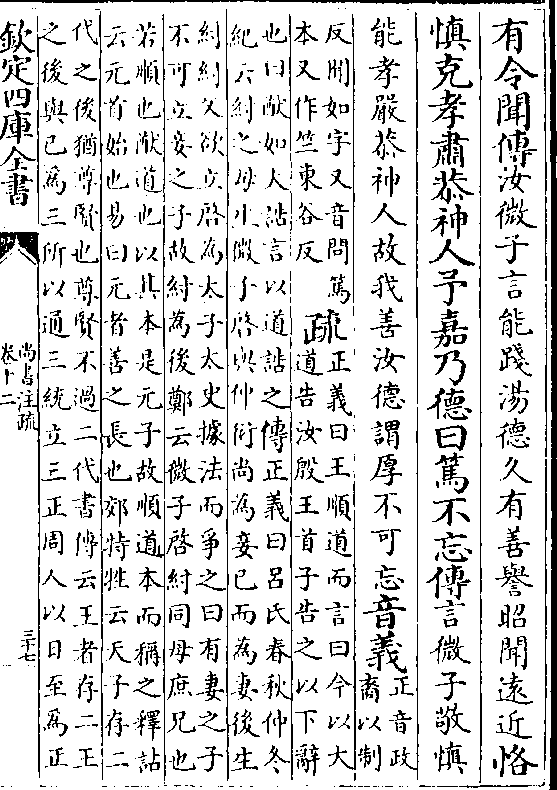 有令聞傳汝微子言能踐湯德久有善譽昭聞遠近恪
慎克孝肅恭神人予嘉乃德曰篤不忘傳言微子敬慎
能孝嚴恭神人故我善汝德謂厚不可忘音義
正音政
裔以制
反聞如字又音問篤
本又作竺東谷反
疏
正義曰王順道而言曰今以大
道告汝殷王首子告之以下辭
也曰猷如大誥言以道誥之傳正義曰呂氏春秋仲冬
紀云紂之母生微子啓與仲衍尚為妾已而為妻後生
紂紂父欲立啓為太子太史據法而爭之曰有妻之子
不可立妾之子故紂為後鄭云微子啓紂同母庶兄也
若順也猷道也以其本是元子故順道本而稱之釋詁
云元首始也易曰元者善之長也郊特牲云天子存二
代之後猶尊賢也尊賢不過二代書傳云王者存二王
之後與已為三所以通三統立三正周人以日至為正
欽定四庫全書
尚書注疏
卷十二
三十七